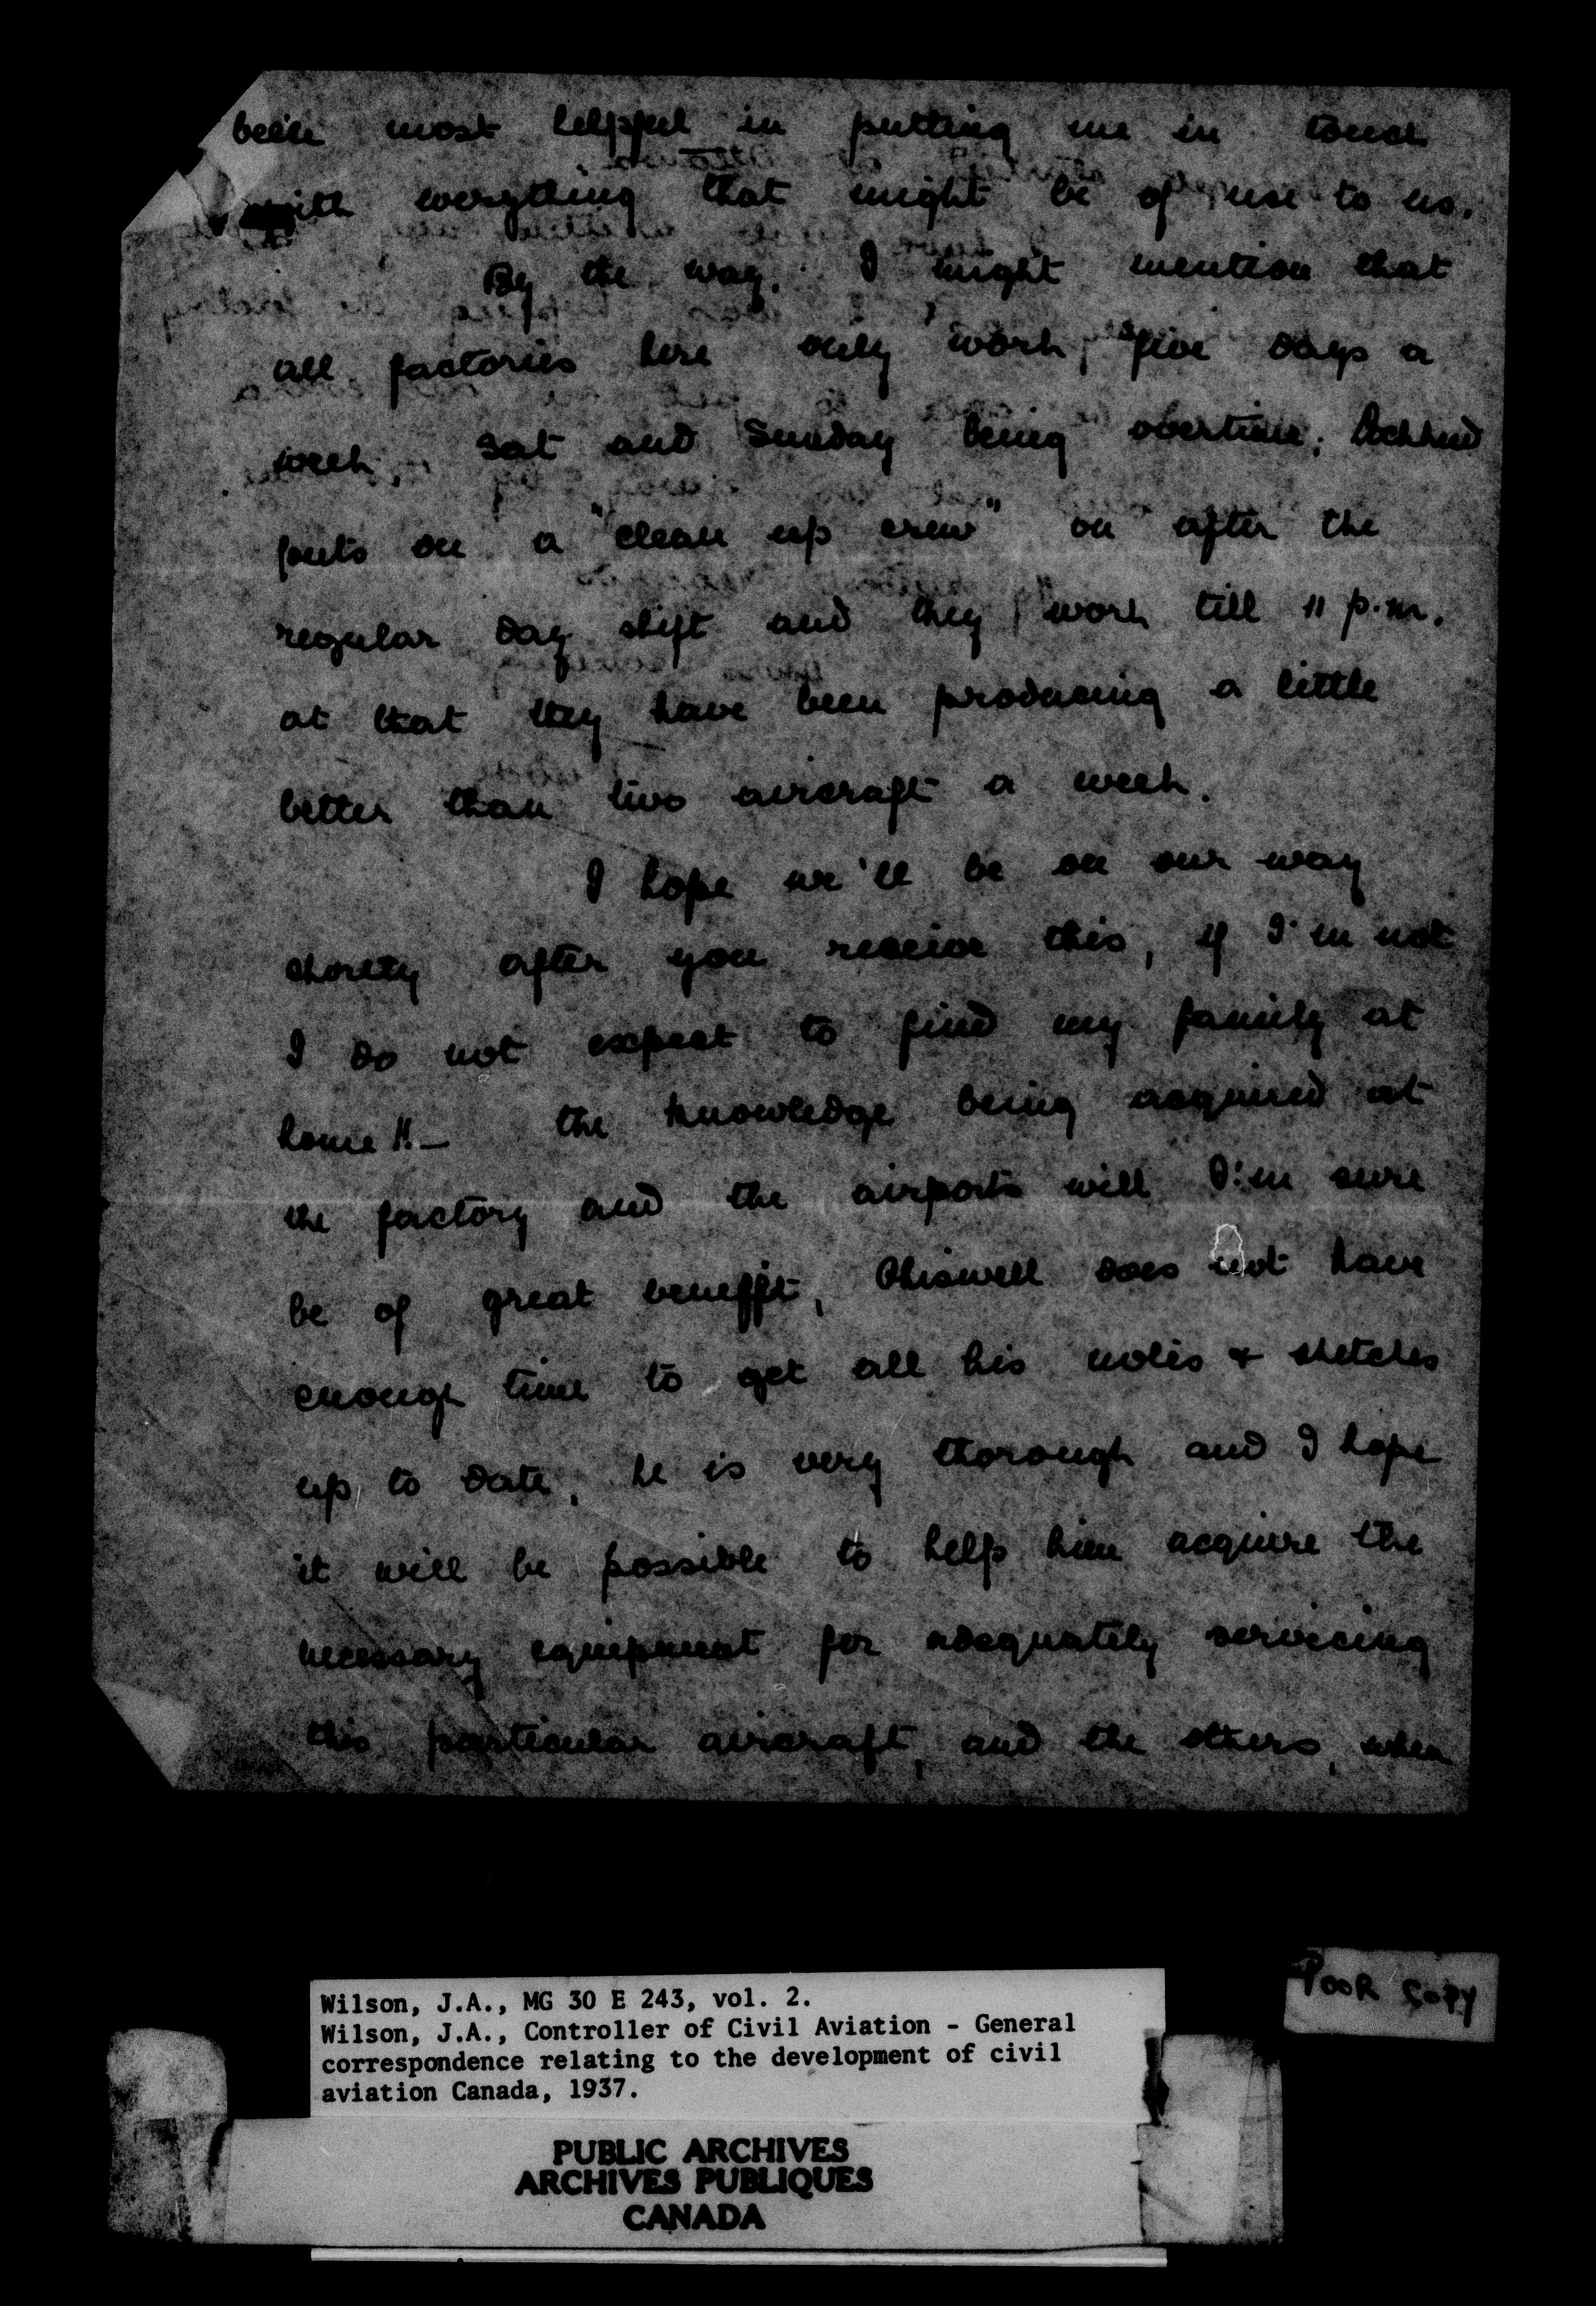 been most helpful in putting me in touch
with everything that might be of use to us.
By the way, I might mention that
all factories here only work five days a
week, Sat and Sunday being overtime, Lockheed
puts on a "clean up crew" on after the
regular day shift and they work till 11 p.m.
at that they have been producing a little
better than two aircraft a week.
I hope we'll be on our way
shortly after you receive this, if I'm not
I do not expect to find my family at
home!! — the knowledge being acquired at
the factory and the airports will I'm sure
be of great benefit, does not have
enough time to get all his notes & sketches
up to date, he is very thorough and I hope
it will be possible to help him acquire the
necessary equipment for adequately servicing
this particular aircraft, and the others, when
Wilson, J.A., MG 30 E 243, vol. 2.
Wilson, J.A., Controller of Civil Aviation - General
correspondence relating to the development of civil
aviation Canada, 1937.
POOR COPY
PUBLIC ARCHIVES
ARCHIVES PUBLIQUES
CANADA